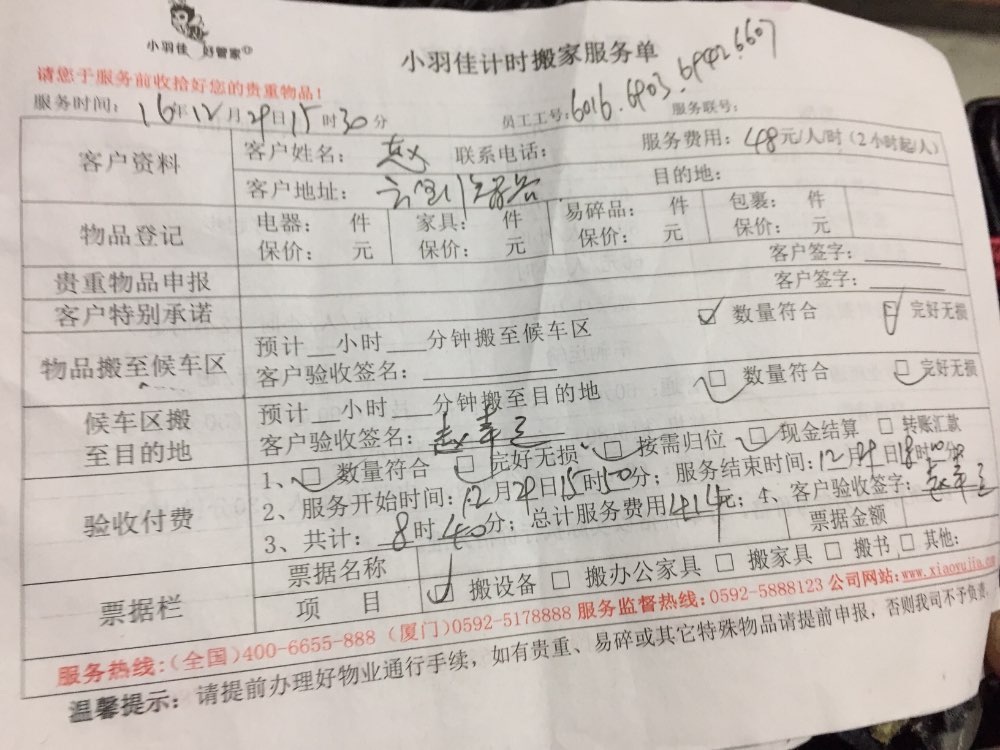 小羽佳 好管家
小羽佳计时搬家服务单
请您于服务前收拾好您的贵重物品！
服务时间：16年12月29日15时30分 员工工号：6016.6903.6942.6607 服务联号：
客户资料 客户姓名：赵 联系电话： 服务费用：48元/人/时（2小时起/人）
客户地址： 目的地：
物品登记 电器： 件 家具： 件 易碎品： 件 包裹： 件
保价： 元 保价： 元 保价： 元 保价： 元
贵重物品申报 客户签字：
客户特别承诺 客户签字：
物品搬至候车区 预计__小时___分钟搬至候车区 数量符合 完好无损
客户验收签名：
候车区搬至目的地 预计__小时___分钟搬至目的地 数量符合 完好无损
客户验收签名：赵幸
验收付费 1、□ 数量符合 □ 完好无损 □ 按需归位 □ 现金结算 □ 转账汇款
2、服务开始时间：12月29日15时50分；服务结束时间：12月29日18时00分
3、共计：8时40分；总计服务费用414元；4、客户验收签字：赵幸
票据栏 票据名称 票据金额
项 目 □ 搬设备 □ 搬办公家具 □ 搬家具 □ 搬书 □ 其他：
服务热线：（全国）400-6655-888（厦门）0592-5178888 服务监督热线：0592-5888123 公司网站：www.xiaoyujia.com
温馨提示：请提前办理好物业通行手续，如有贵重、易碎或其它特殊物品请提前申报，否则我司不予负责。